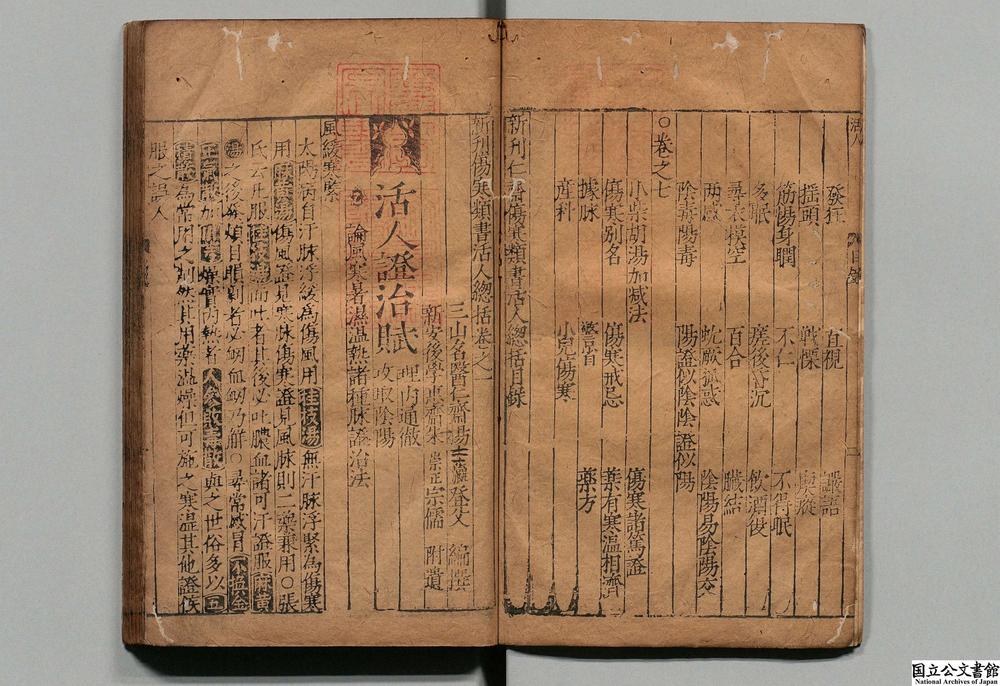 發狂 直視 譫語
搖頭 戰慄
筋惕身瞤 不仁 不得眠
多眠 瘥後昏沉 飲酒後
尋衣模空 百合 臟結
兩感 蚘厥狐惑 陰陽易陰陽交
陰毒陽毒 陽證似陰陰證似陽
○卷之七
小柴胡湯加減法 傷寒諸篤證
傷寒別名 傷寒戒忌 藥有寒溫相濟
撮脉 藥方
產科 小兒傷寒
新刊仁齋傷寒類書活人總括目錄
新刊傷寒類書活人總括卷之一
三山名醫仁齋楊士瀛登父 編撰
新安後學惠齋朱崇正宗儒 附遺
活人證治賦 理內通徹 攻取陰陽
論風寒暑濕溫熱諸種脉證治法
風緩寒緊
太陽病自汗脉浮緩為傷風用桂枝湯無汗脉浮緊為傷寒
用麻黃湯傷風證見寒脉傷寒證見風脉則二藥兼用○張
氏云凡服桂枝湯而吐者其後必吐膿血諸可汗證服麻黃
湯之後發煩目瞑劇者必衂血衂乃解○尋常感冒不換金
正氣散加 燥實內熱者人參敗毒散與之世俗多以五
積散為常用之劑然其用藥溫燥但可施之寒溫其他證候
服之誤人
国立公文書館
National Archives of Japan